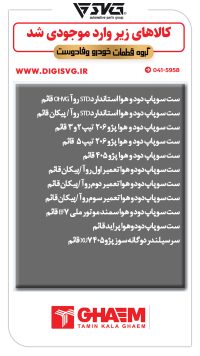 SVG
automotive parts group
کالاهای زیر وارد موجودی شد
گروه قطعات خودرو وفادوست
WWW.DIGISVG.IR
041-5958
ست سوپاپ دود و هوا استاندارد STD روآ OHVG قائم
ست سوپاپ دود و هوا استاندارد STD روآ / پیکان قائم
ست سوپاپ دود و هوا پژو 206 تیپ 2 و 3 قائم
ست سوپاپ دود و هوا پژو 206 تیپ 5 قائم
ست سوپاپ دود و هوا پژو 405 قائم
ست سوپاپ دود و هوا تعمیر اول روآ / پیکان قائم
ست سوپاپ دود و هوا تعمیر دوم روآ / پیکان قائم
ست سوپاپ دود و هوا تعمیر سوم روآ / پیکان قائم
ست سوپاپ دود و هوا سمند موتور ملی EF7 قائم
ست سوپاپ دود و هوا پراید قائم
سرسیلندر دوگانه سوز پژو 405 XU7 قائم
GHAEM
TAMIN KALA GHAEM